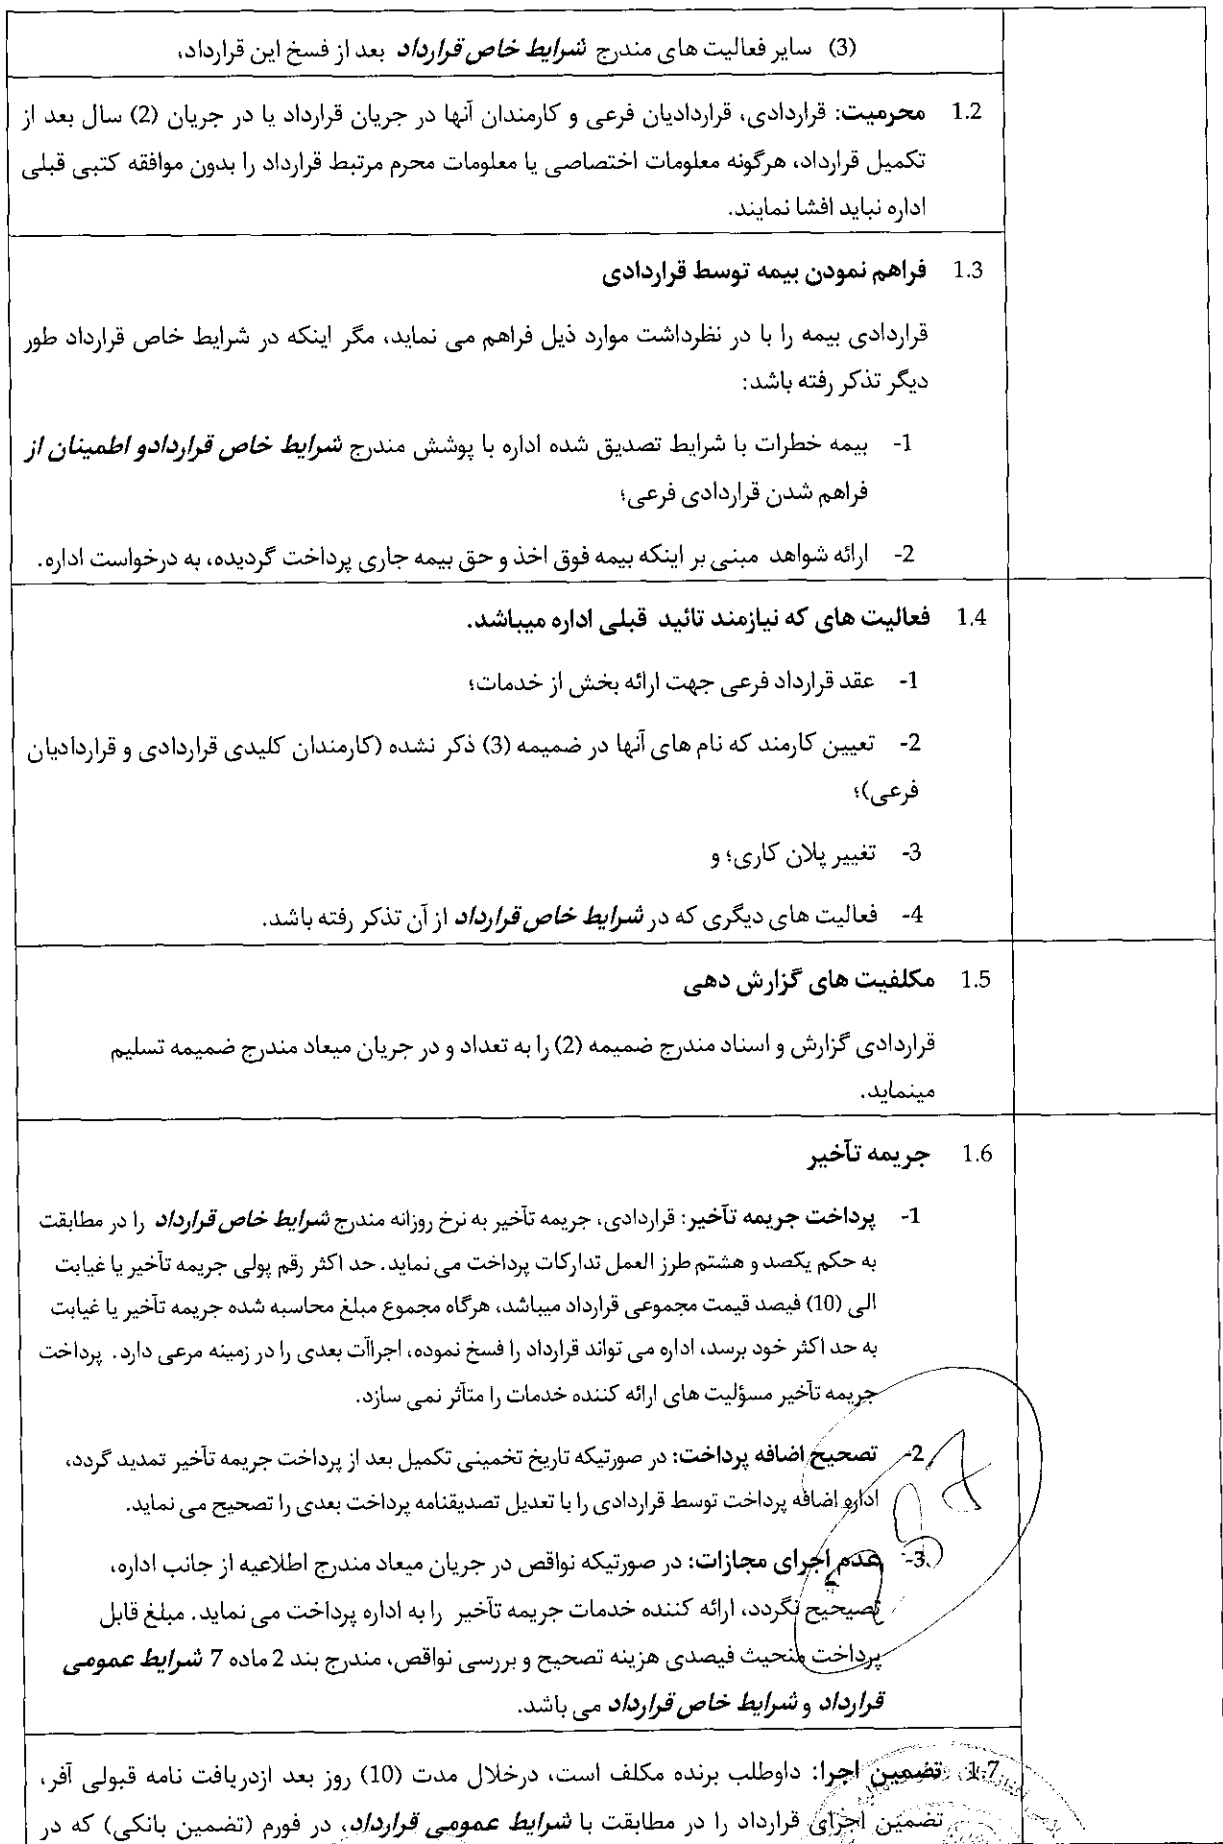 (3) سایر فعالیت های مندرج شرایط خاص قرارداد بعد از فسخ این قرارداد،
1.2 محرمیت: قراردادی، قراردادیان فرعی و کارمندان آنها در جریان قرارداد یا در جریان (2) سال بعد از
تکمیل قرارداد، هرگونه معلومات اختصاصی یا معلومات محرم مرتبط قرارداد را بدون موافقه کتبی قبلی
اداره نباید افشا نمایند.
1.3 فراهم نمودن بیمه توسط قراردادی
قراردادی بیمه را با در نظرداشت موارد ذیل فراهم می نماید، مگر اینکه در شرایط خاص قرارداد طور
دیگر تذکر رفته باشد:
1- بیمه خطرات با شرایط تصدیق شده اداره با پوشش مندرج شرایط خاص قراردادو اطمینان از
فراهم شدن قراردادی فرعی؛
2- ارائه شواهد مبنی بر اینکه بیمه فوق اخذ و حق بیمه جاری پرداخت گردیده، به درخواست اداره.
1.4 فعالیت های که نیازمند تائید قبلی اداره میباشد.
1- عقد قرارداد فرعی جهت ارائه بخش از خدمات؛
2- تعیین کارمند که نام های آنها در ضمیمه (3) ذکر نشده (کارمندان کلیدی قراردادی و قراردادیان
فرعی)؛
3- تغییر پلان کاری؛ و
4- فعالیت های دیگری که در شرایط خاص قرارداد از آن تذکر رفته باشد.
1.5 مکلفیت های گزارش دهی
قراردادی گزارش و اسناد مندرج ضمیمه (2) را به تعداد و در جریان میعاد مندرج ضمیمه تسلیم
مینماید.
1.6 جریمه تآخیر
1- پرداخت جریمه تآخیر: قراردادی، جریمه تآخیر به نرخ روزانه مندرج شرایط خاص قرارداد را در مطابقت
به حکم یکصد و هشتم طرز العمل تدارکات پرداخت می نماید. حد اکثر رقم پولی جریمه تآخیر یا غیابت
الی (10) فیصد قیمت مجموعی قرارداد میباشد، هرگاه مجموع مبلغ محاسبه شده جریمه تآخیر یا غیابت
به حد اکثر خود برسد، اداره می تواند قرارداد را فسخ نموده، اجراآت بعدی را در زمینه مرعی دارد. پرداخت
جریمه تآخیر مسؤلیت های ارائه کننده خدمات را متآثر نمی سازد.
2- تصحیح اضافه پرداخت: در صورتیکه تاریخ تخمینی تکمیل بعد از پرداخت جریمه تآخیر تمدید گردد،
اداره اضافه پرداخت توسط قراردادی را با تعدیل تصدیقنامه پرداخت بعدی را تصحیح می نماید.
3- عدم اجرای مجازات: در صورتیکه نواقص در جریان میعاد مندرج اطلاعیه از جانب اداره،
تصیحیح نگردد، ارائه کننده خدمات جریمه تآخیر را به اداره پرداخت می نماید. مبلغ قابل
پرداخت منحیث فیصدی هزینه تصحیح و بررسی نواقص، مندرج بند 2 ماده 7 شرایط عمومی
قرارداد و شرایط خاص قرارداد می باشد.
1.7 تضمین اجرا: داوطلب برنده مکلف است، درخلال مدت (10) روز بعد ازدریافت نامه قبولی آفر،
تضمین اجرای قرارداد را در مطابقت با شرایط عمومی قرارداد، در فورم (تضمین بانکی) که در